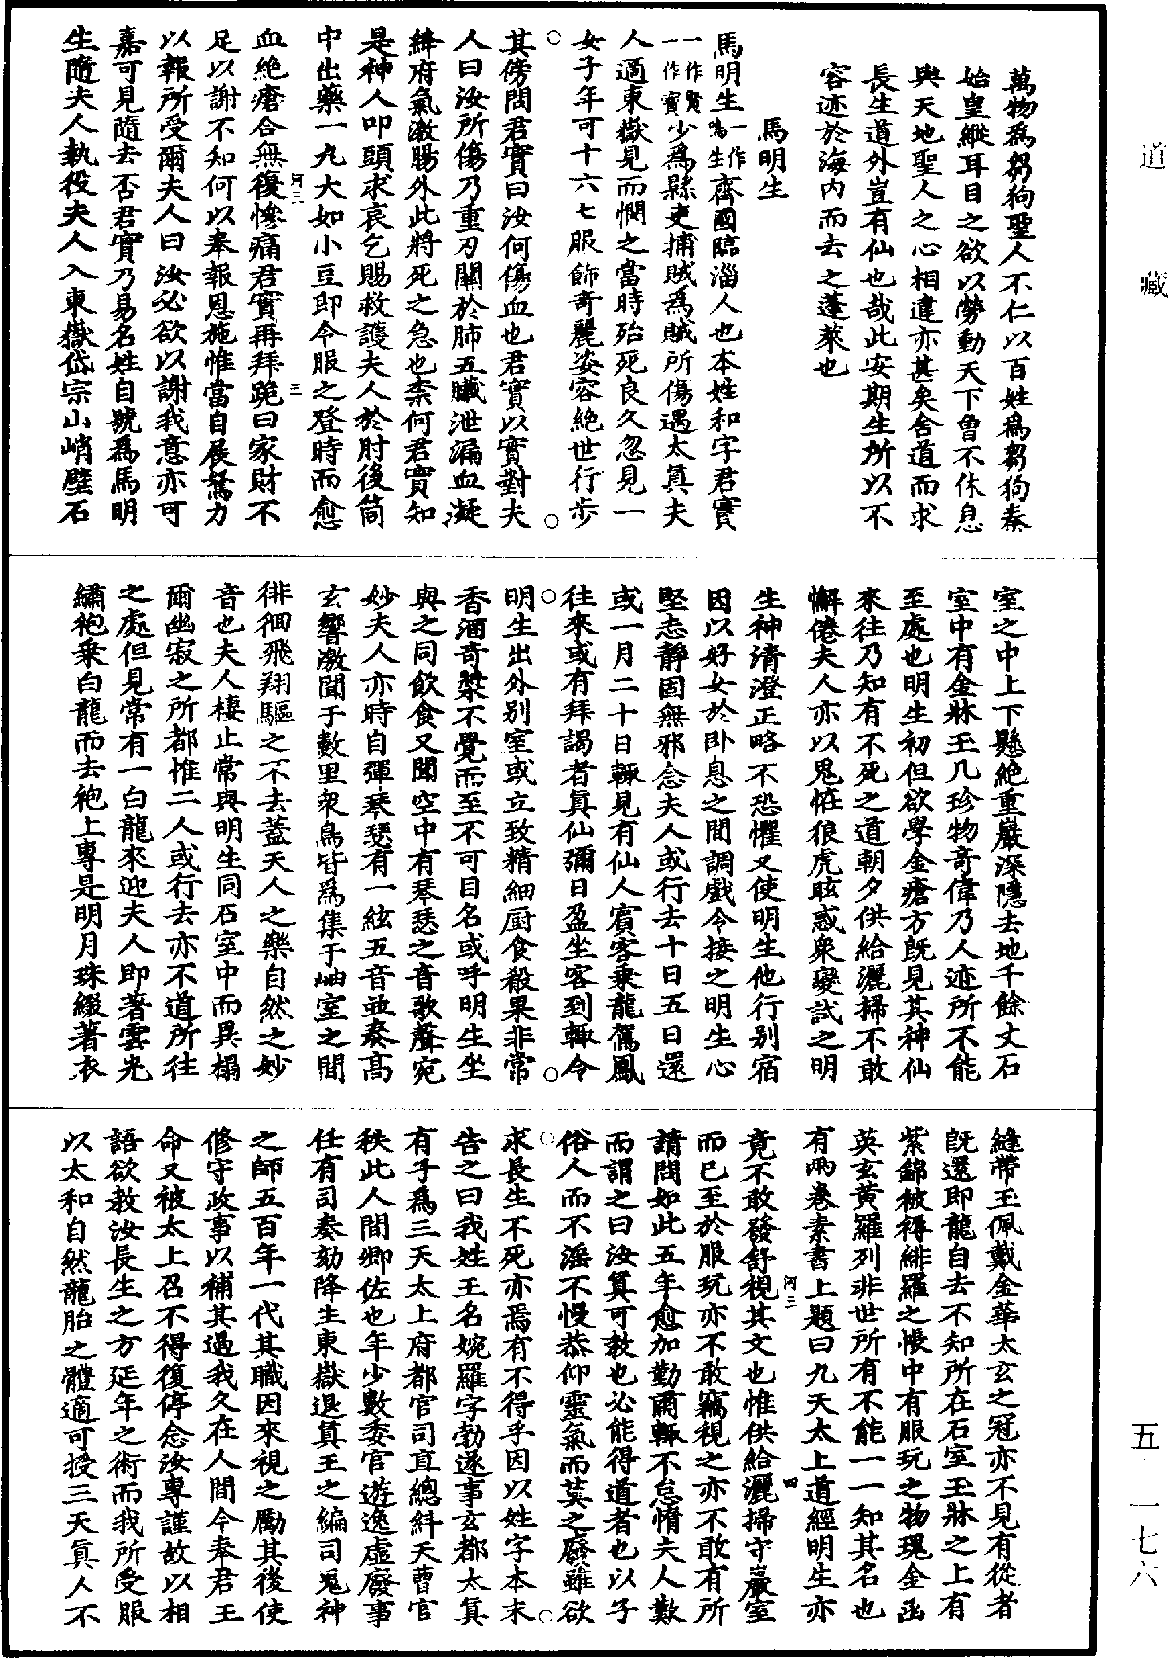 道藏
萬物爲芻狗聖人不仁以百姓爲芻狗秦
始皇縱耳目之欲以勞動天下曾不休息
與天地聖人之心相違亦甚矣舍道而求
長生道外豈有仙也哉此安期生所以不
容迹於海内而去之蓬萊也
馬明生
馬明生一作鳴生齊國臨淄人也本姓和字君實
一作賢一作寶少爲縣吏捕賊爲賊所傷遇太真夫
人適東嶽見而憫之當時殆死良久忽見一
女子年可十六七服飾奇麗姿容絶世行步
其傍問君實曰汝何傷血也君實以實對夫
人曰汝所傷乃重刃關於肺五臟泄漏血凝
絳府氣激腸外此將死之急也柰何君實知
是神人叩頭求哀乞賜救護夫人於肘後筒
中出藥一丸大如小豆即令服之登時而愈
血絶瘡合無復慘痛君實再拜跪曰家財不
足以謝不知何以奉報恩施惟當自展駑力
以報所受爾夫人曰汝必欲以謝我意亦可
嘉可見隨去否君實乃易名姓自號爲馬明
生隨夫人執役夫人入東嶽岱宗山峭壁石
河三 三
室之中上下懸絶重巖深隱去地千餘丈石
室中有金牀玉几珍物奇偉乃人迹所不能
至處也明生初但欲學金瘡方既見其神仙
來往乃知有不死之道朝夕供給灑掃不敢
懈倦夫人亦以鬼恠狼虎眩惑衆變試之明
生神清澄正略不恐懼又使明生他行别宿
因以好女於卧息之間調戲令接之明生心
堅志靜固無邪念夫人或行去十日五日還
或一月二十日輒見有仙人賓客乘龍駕鳳
往來或有拜謁者真仙彌日盈坐客到輒令
明生出外别室或立致精細厨食殽果非常
香酒奇漿不覺而至不可目名或呼明生坐
與之同飲食又聞空中有琴瑟之音歌聲宛
妙夫人亦時自彈琴瑟有一絃五音並奏高
玄響激聞于數里衆鳥皆爲集于岫室之間
徘徊飛翔驅之不去蓋天人之樂自然之妙
音也夫人棲止常與明生同石室中而異榻
爾幽寂之所都惟二人或行去亦不道所往
之處但見常有一白龍來迎夫人即著雲光
繡袍乘白龍而去袍上專是明月珠綴著衣
縫帶玉佩戴金華太玄之冠亦不見有從者
既還即龍自去不知所在石室玉牀之上有
紫錦被褥緋羅之帳中有服玩之物瑰金函
英玄黄羅列非世所有不能一一知其名也
有兩卷素書上題曰九天太上道經明生亦
河三 四
竟不敢發舒視其文也惟供給灑掃守巖室
而已至於服玩亦不敢竊視之亦不敢有所
請問如此五年愈加勤肅輒不怠惰夫人歎
而謂之曰汝真可教也必能得道者也以子
俗人而不淫不慢恭仰靈氣而莫之廢雖欲
求長生不死亦焉有不得乎因以姓字本末
告之曰我姓王名婉羅字勃遂事玄都太真
有子爲三天太上府都官司直總糾天曹官
秩此人間卿佐也年少數委官遊逸虛廢事
任有司奏劾降生東嶽退真王之編司鬼神
之師五百年一代其職因來視之勵其後使
修守政事以補其過我久在人間今奉君王
命又被太上召不得復停念汝專謹故以相
語欲教汝長生之方延年之術而我所受服
以太和自然龍胎之醴適可授三天真人不
五·一七六